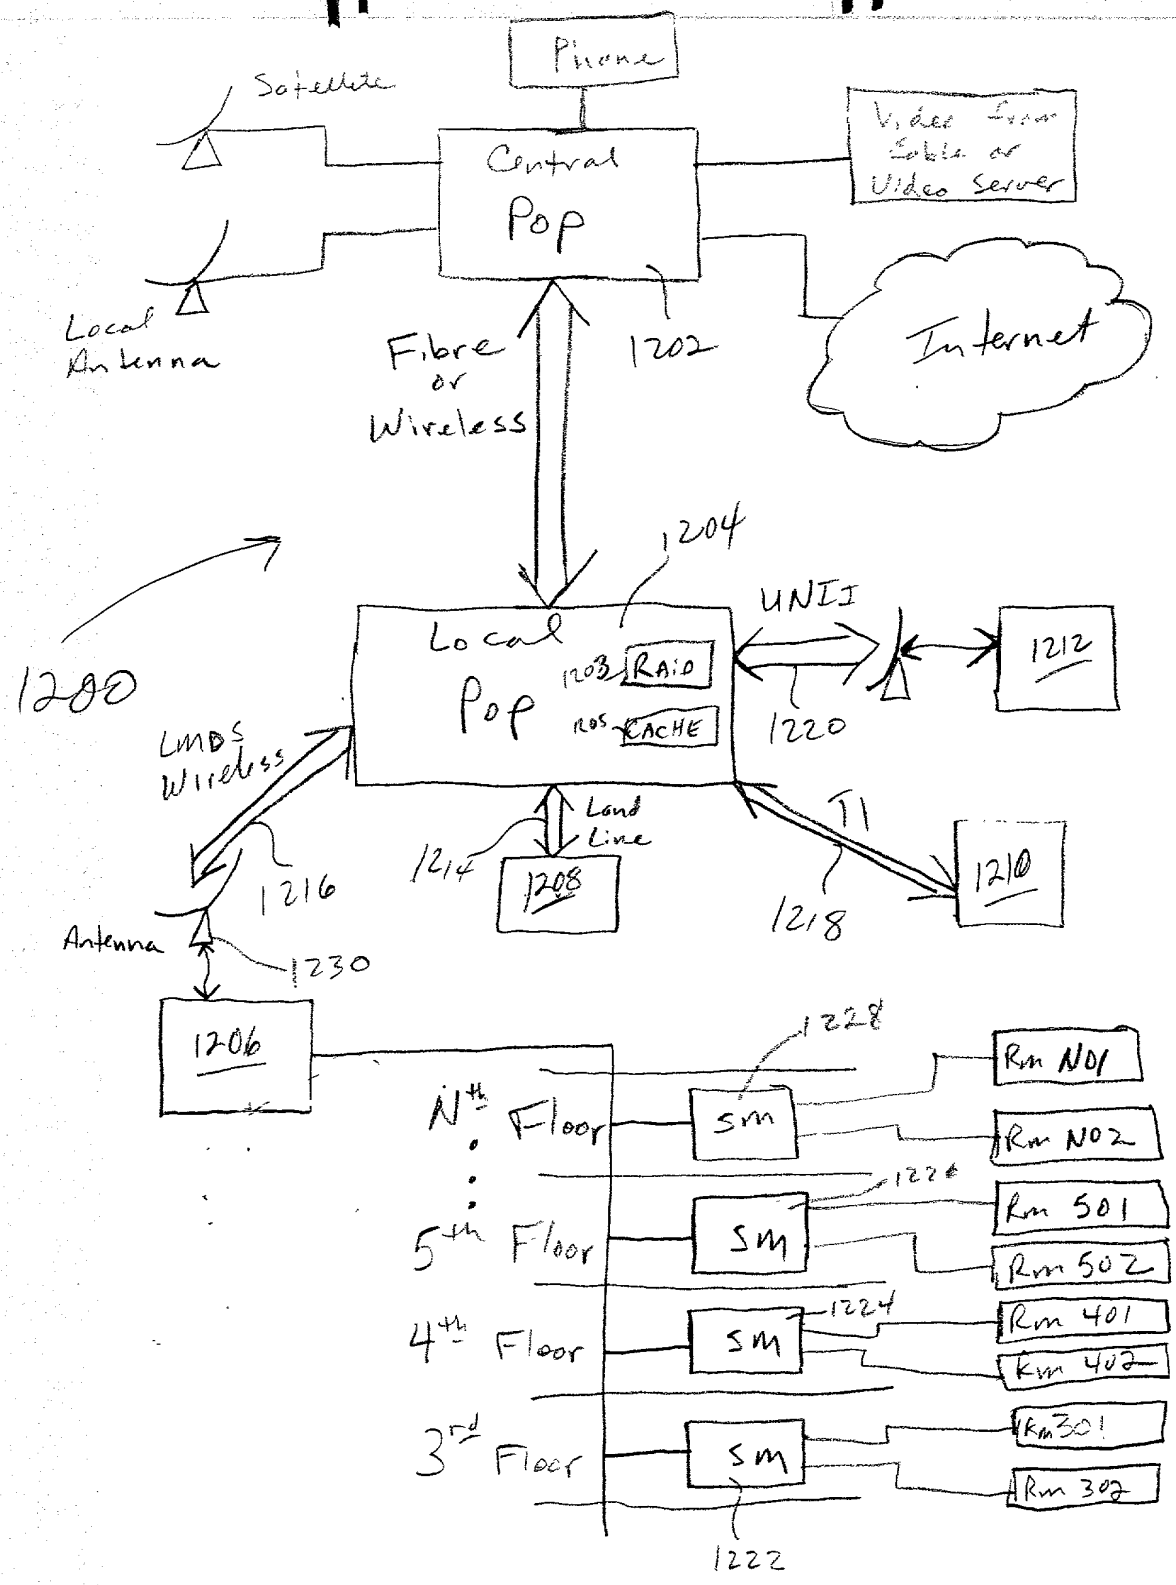 Phone
Satellite
Central
Pop
Video from
Cable or
Video Server
Local
Antenna
1202
Internet
Fibre
or
Wireless
1204
1200
Local
Pop
1203
RAID
1205
CACHE
UNII
1212
1220
LMDS
Wireless
Land
Line
T1
1214
1208
1210
1216
1218
Antenna
1230
1206
1228
Nth
Floor
SM
Rm N01
Rm N02
1226
5th Floor
SM
Rm 501
Rm 502
1224
4th Floor
SM
Rm 401
Rm 402
3rd Floor
SM
Rm 301
Rm 302
1222